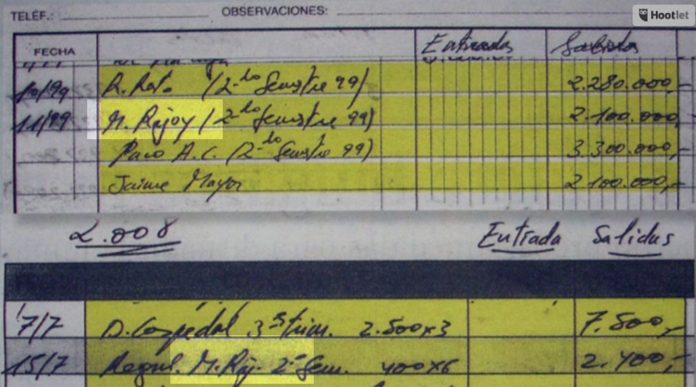 TELÉF.: OBSERVACIONES:
Hootlet
FECHA Entradas Salidas
10/99 R. Rato (2-do Semestre 99) 2.280.000,-
11/99 M. Rajoy (2-do Semestre 99) 2.100.000,-
Paco A.C. (2-do Semestre 99) 3.300.000,-
Jaime Mayor 2.100.000,-
2.008 Entrada Salidas
7/7 D. Cospedal 3er trim. 2.500x3 7.500,-
15/7 M. Raj. 2º Sem. 400x6 2.400,-